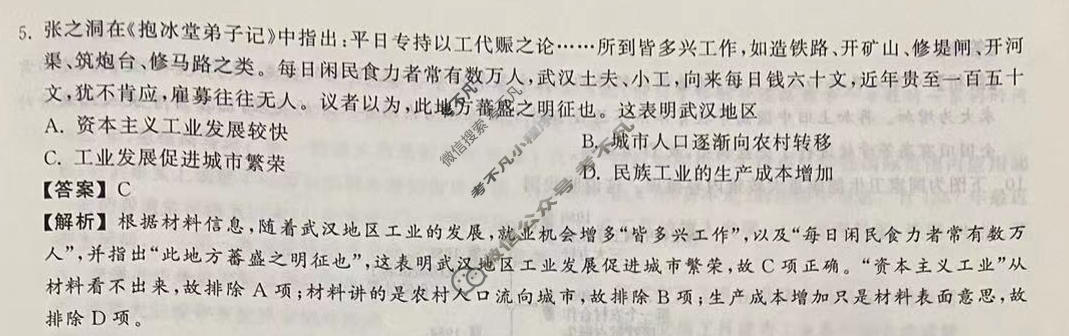 5. 张之洞在《抱冰堂弟子记》中指出:平日专持以工代赈之论……所到皆多兴工作,如造铁路、开矿山、修堤闸、开河
渠、筑炮台、修马路之类。每日闲民食力者常有数万人,武汉土夫、小工,向来每日钱六十文,近年贵至一百五十
文,犹不肯应,雇募往往无人。议者以为,此地方蕃盛之明征也。这表明武汉地区
A. 资本主义工业发展较快
B. 城市人口逐渐向农村转移
C. 工业发展促进城市繁荣
D. 民族工业的生产成本增加
【答案】C
【解析】根据材料信息,随着武汉地区工业的发展,就业机会增多“皆多兴工作”,以及“每日闲民食力者常有数万
人”,并指出“此地方蕃盛之明征也”,这表明武汉地区工业发展促进城市繁荣,故C项正确。“资本主义工业”从
材料看不出来,故排除A项;材料讲的是农村人口流向城市,故排除B项;生产成本增加只是材料表面意思,故
排除D项。
微信搜索小程序
考不凡
微信公众号 考不凡